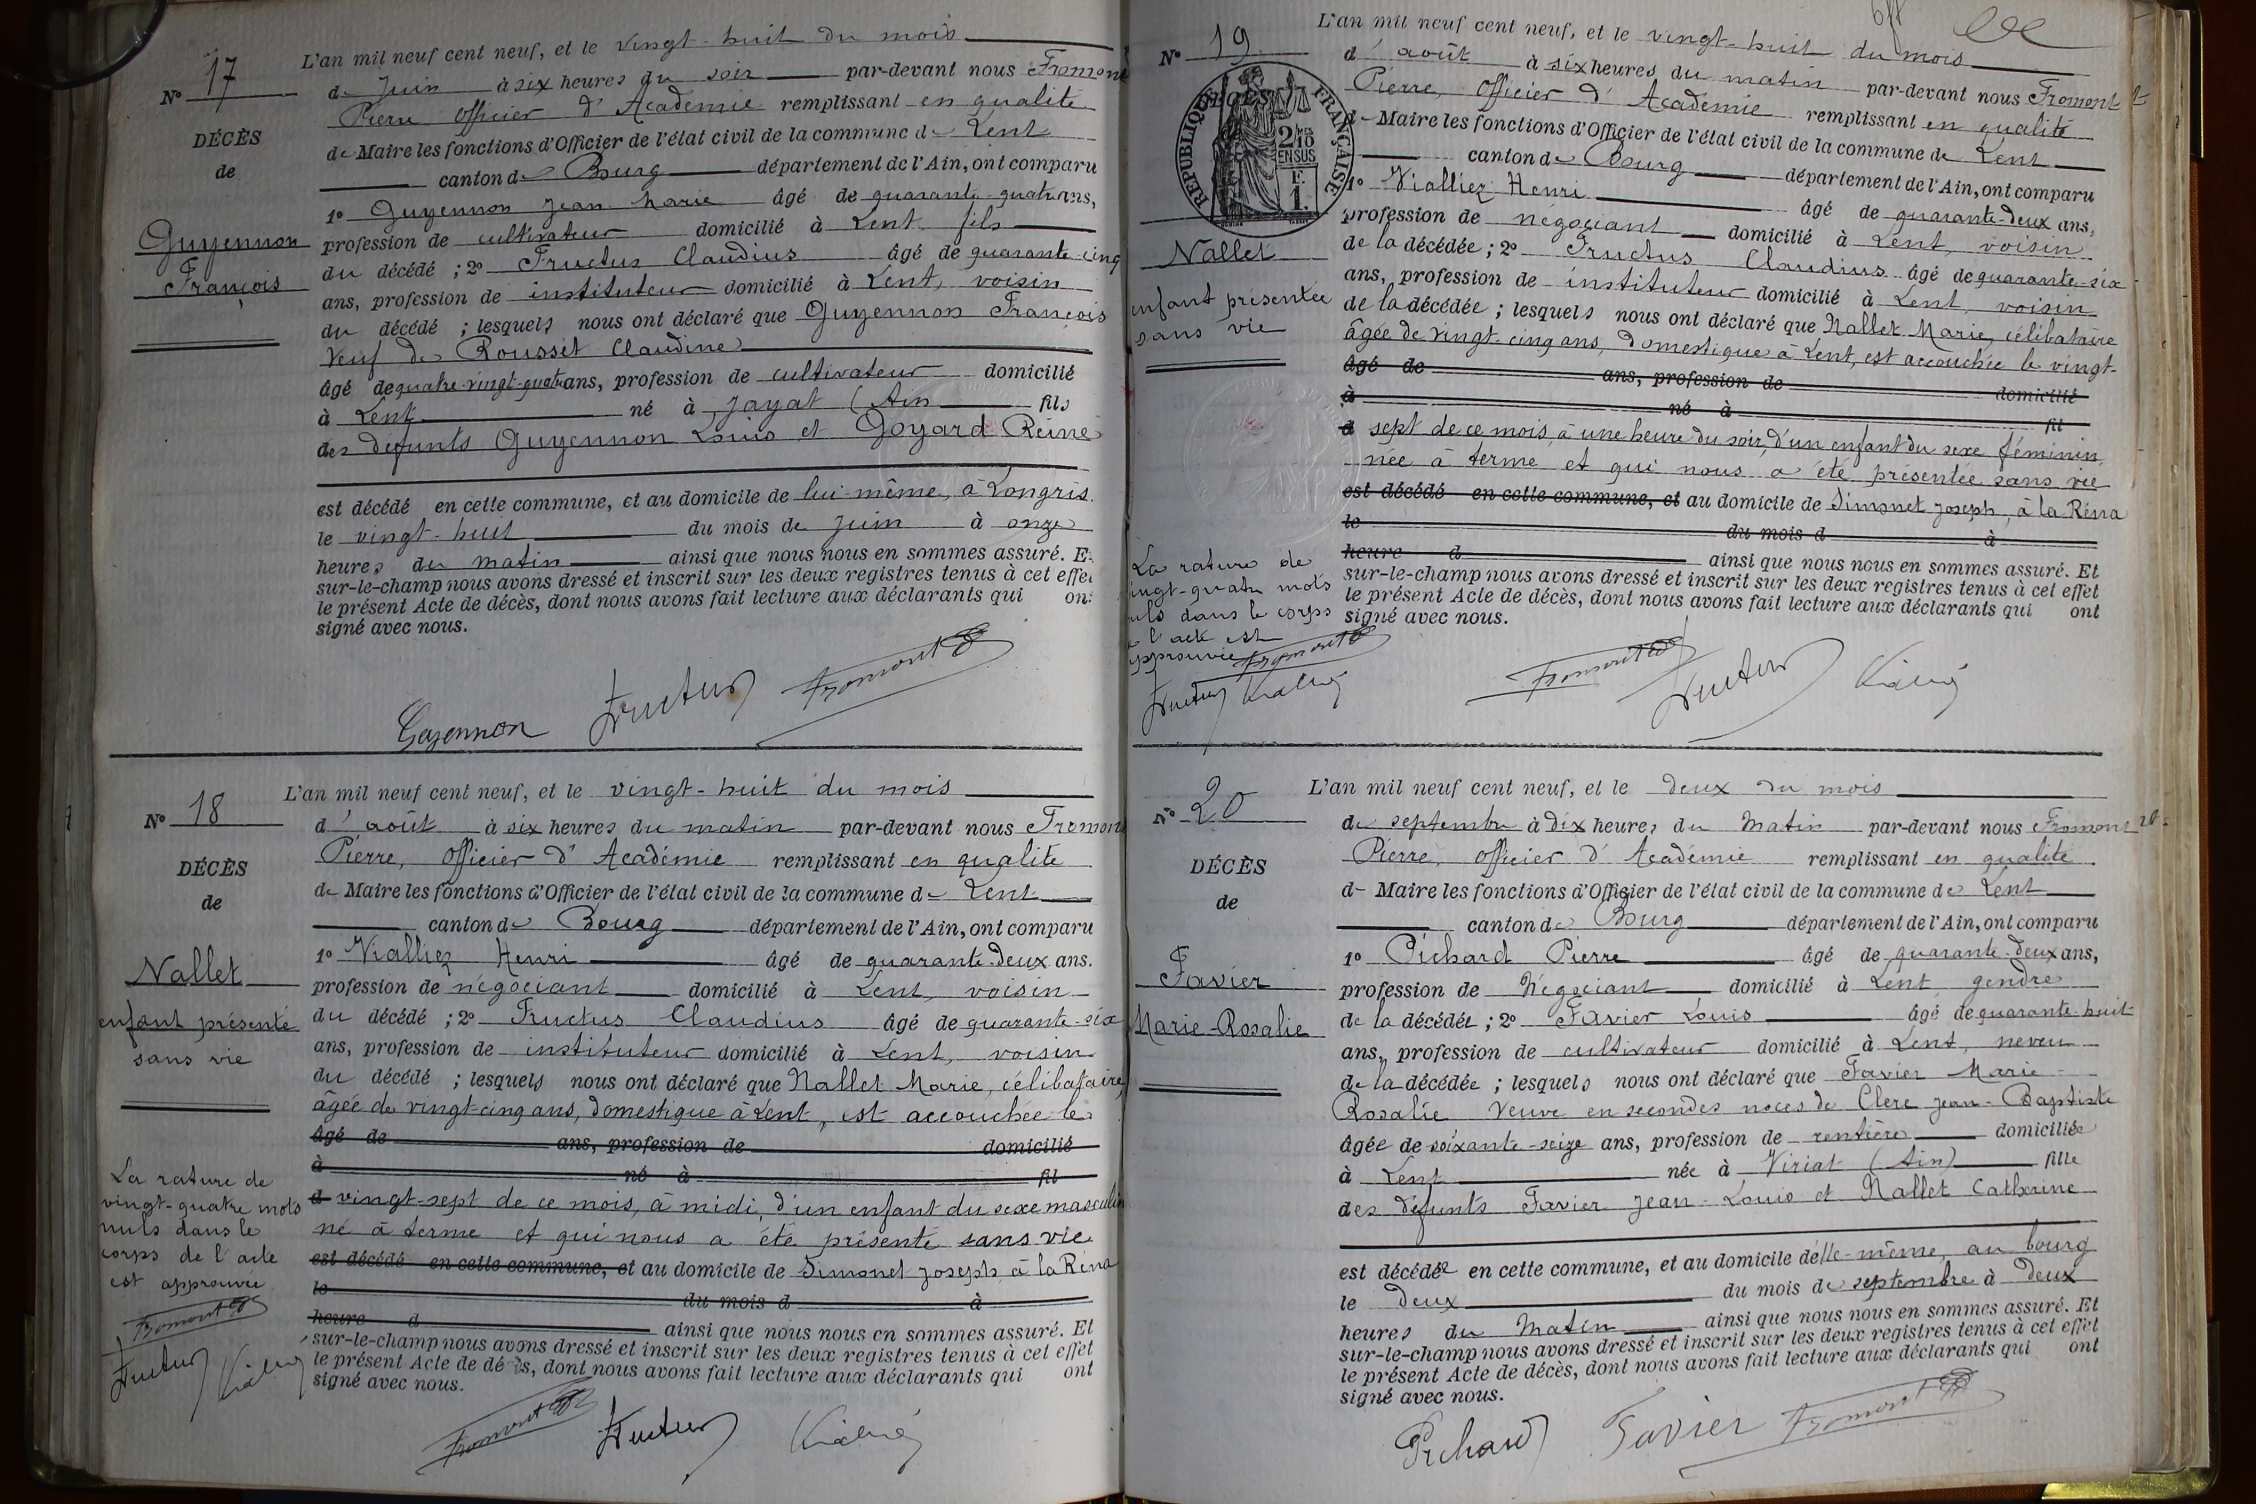 Nº 17
DÉCÈS
de
Guyennon
François
L'an mil neuf cent neuf, et le vingt-huit du mois
de Juin à six heures du soir par-devant nous Fromont
Pierre Officier d'Académie remplissant en qualité
de Maire les fonctions d'Officier de l'état civil de la commune de Lent
canton de Bourg département de l'Ain, ont comparu
1º Guyennon Jean Marie âgé de quarante-quatre ans,
profession de cultivateur domicilié à Lent fils
du décédé ; 2º Fructus Claudius âgé de quarante-cinq
ans, profession de instituteur domicilié à Lent, voisin
du décédé ; lesquels nous ont déclaré que Guyennon François
Veuf de Rousset Claudine
âgé de quatre-vingt-quatre ans, profession de cultivateur domicilié
à Lent né à Jayat (Ain fils
des défunts Guyennon Louis et Goyard Reine
est décédé en cette commune, et au domicile de lui-même, à Longris.
le vingt-huit du mois de Juin à onze
heures du matin ainsi que nous nous en sommes assuré. Et
sur-le-champ nous avons dressé et inscrit sur les deux registres tenus à cet effet
le présent Acte de décès, dont nous avons fait lecture aux déclarants qui ont
signé avec nous.
Guyennon Fructus Fromont
Nº 18
DÉCÈS
de
Nallet
enfant présenté
sans vie
La rature de
vingt-quatre mots
nuls dans le
corps de l'acte
est approuvée
Fromont
Fructus
L'an mil neuf cent neuf, et le vingt-huit du mois
d'août à six heures du matin par-devant nous Fromont
Pierre, Officier d'Académie remplissant en qualité
de Maire les fonctions d'Officier de l'état civil de la commune de Lent
canton de Bourg département de l'Ain, ont comparu
1º Vialliez Henri âgé de quarante-deux ans.
profession de négociant domicilié à Lent, voisin
du décédé ; 2º Fructus Claudius âgé de quarante-six
ans, profession de instituteur domicilié à Lent, voisin
du décédé ; lesquels nous ont déclaré que Nallet Marie, célibataire,
âgée de vingt-cinq ans, domestique à Lent, est accouchée le
âgé de ans, profession de domicilié
à né à fil
d vingt-sept de ce mois, à midi, d'un enfant du sexe masculin
né à terme et qui nous a été présenté sans vie
est décédé en cette commune, et au domicile de Simonet Joseph, à la Réna
le du mois d à
heure d ainsi que nous nous en sommes assuré. Et
sur-le-champ nous avons dressé et inscrit sur les deux registres tenus à cet effet
le présent Acte de décès, dont nous avons fait lecture aux déclarants qui ont
signé avec nous.
Fromont Fructus
Nº 19
RÉPUBLIQUE FRANÇAISE
2/10 EN SUS
F.
1.
Nallet
enfant présentée
sans vie
La rature de
vingt-quatre mots
nuls dans le corps
de l'acte est
approuvée Fromont
Fructus
L'an mil neuf cent neuf, et le vingt-huit du mois
d'août à six heures du matin par-devant nous Fromont
Pierre, Officier d'Académie remplissant en qualité
de Maire les fonctions d'Officier de l'état civil de la commune de Lent
canton de Bourg département de l'Ain, ont comparu
1º Vialliez Henri âgé de quarante-deux ans,
profession de négociant domicilié à Lent, voisin
de la décédée ; 2º Fructus Claudius âgé de quarante-six
ans, profession de instituteur domicilié à Lent, voisin
de la décédée ; lesquels nous ont déclaré que Nallet Marie, célibataire
âgée de vingt-cinq ans, domestique à Lent, est accouchée le vingt-
âgé de ans, profession de domicilié
à né à fil
d sept de ce mois, à une heure du soir, d'un enfant du sexe féminin,
née à terme et qui nous a été présentée sans vie
est décédé en cette commune, et au domicile de Simonet Joseph, à la Réna
le du mois d à
heure d ainsi que nous nous en sommes assuré. Et
sur-le-champ nous avons dressé et inscrit sur les deux registres tenus à cet effet
le présent Acte de décès, dont nous avons fait lecture aux déclarants qui ont
signé avec nous.
Fromont Fructus
Nº 20
DÉCÈS
de
Favier
Marie-Rosalie
L'an mil neuf cent neuf, et le deux du mois
de septembre à dix heures du Matin par-devant nous Fromont
Pierre, Officier d'Académie remplissant en qualité
de Maire les fonctions d'Officier de l'état civil de la commune de Lent
canton de Bourg département de l'Ain, ont comparu
1º Pichard Pierre âgé de quarante-deux ans,
profession de Négociant domicilié à Lent, gendre
de la décédée ; 2º Favier Louis âgé de quarante-huit
ans, profession de cultivateur domicilié à Lent, neveu
de la décédée ; lesquels nous ont déclaré que Favier Marie
Rosalie Veuve en secondes noces de Clerc Jean-Baptiste
âgée de soixante-seize ans, profession de rentière domiciliée
à Lent née à Viriat (Ain) fille
des défunts Favier Jean-Louis et Nallet Catherine
est décédée en cette commune, et au domicile d'elle-même, au bourg
le deux du mois de septembre à deux
heures du Matin ainsi que nous nous en sommes assuré. Et
sur-le-champ nous avons dressé et inscrit sur les deux registres tenus à cet effet
le présent Acte de décès, dont nous avons fait lecture aux déclarants qui ont
signé avec nous.
Pichard Favier Fromont